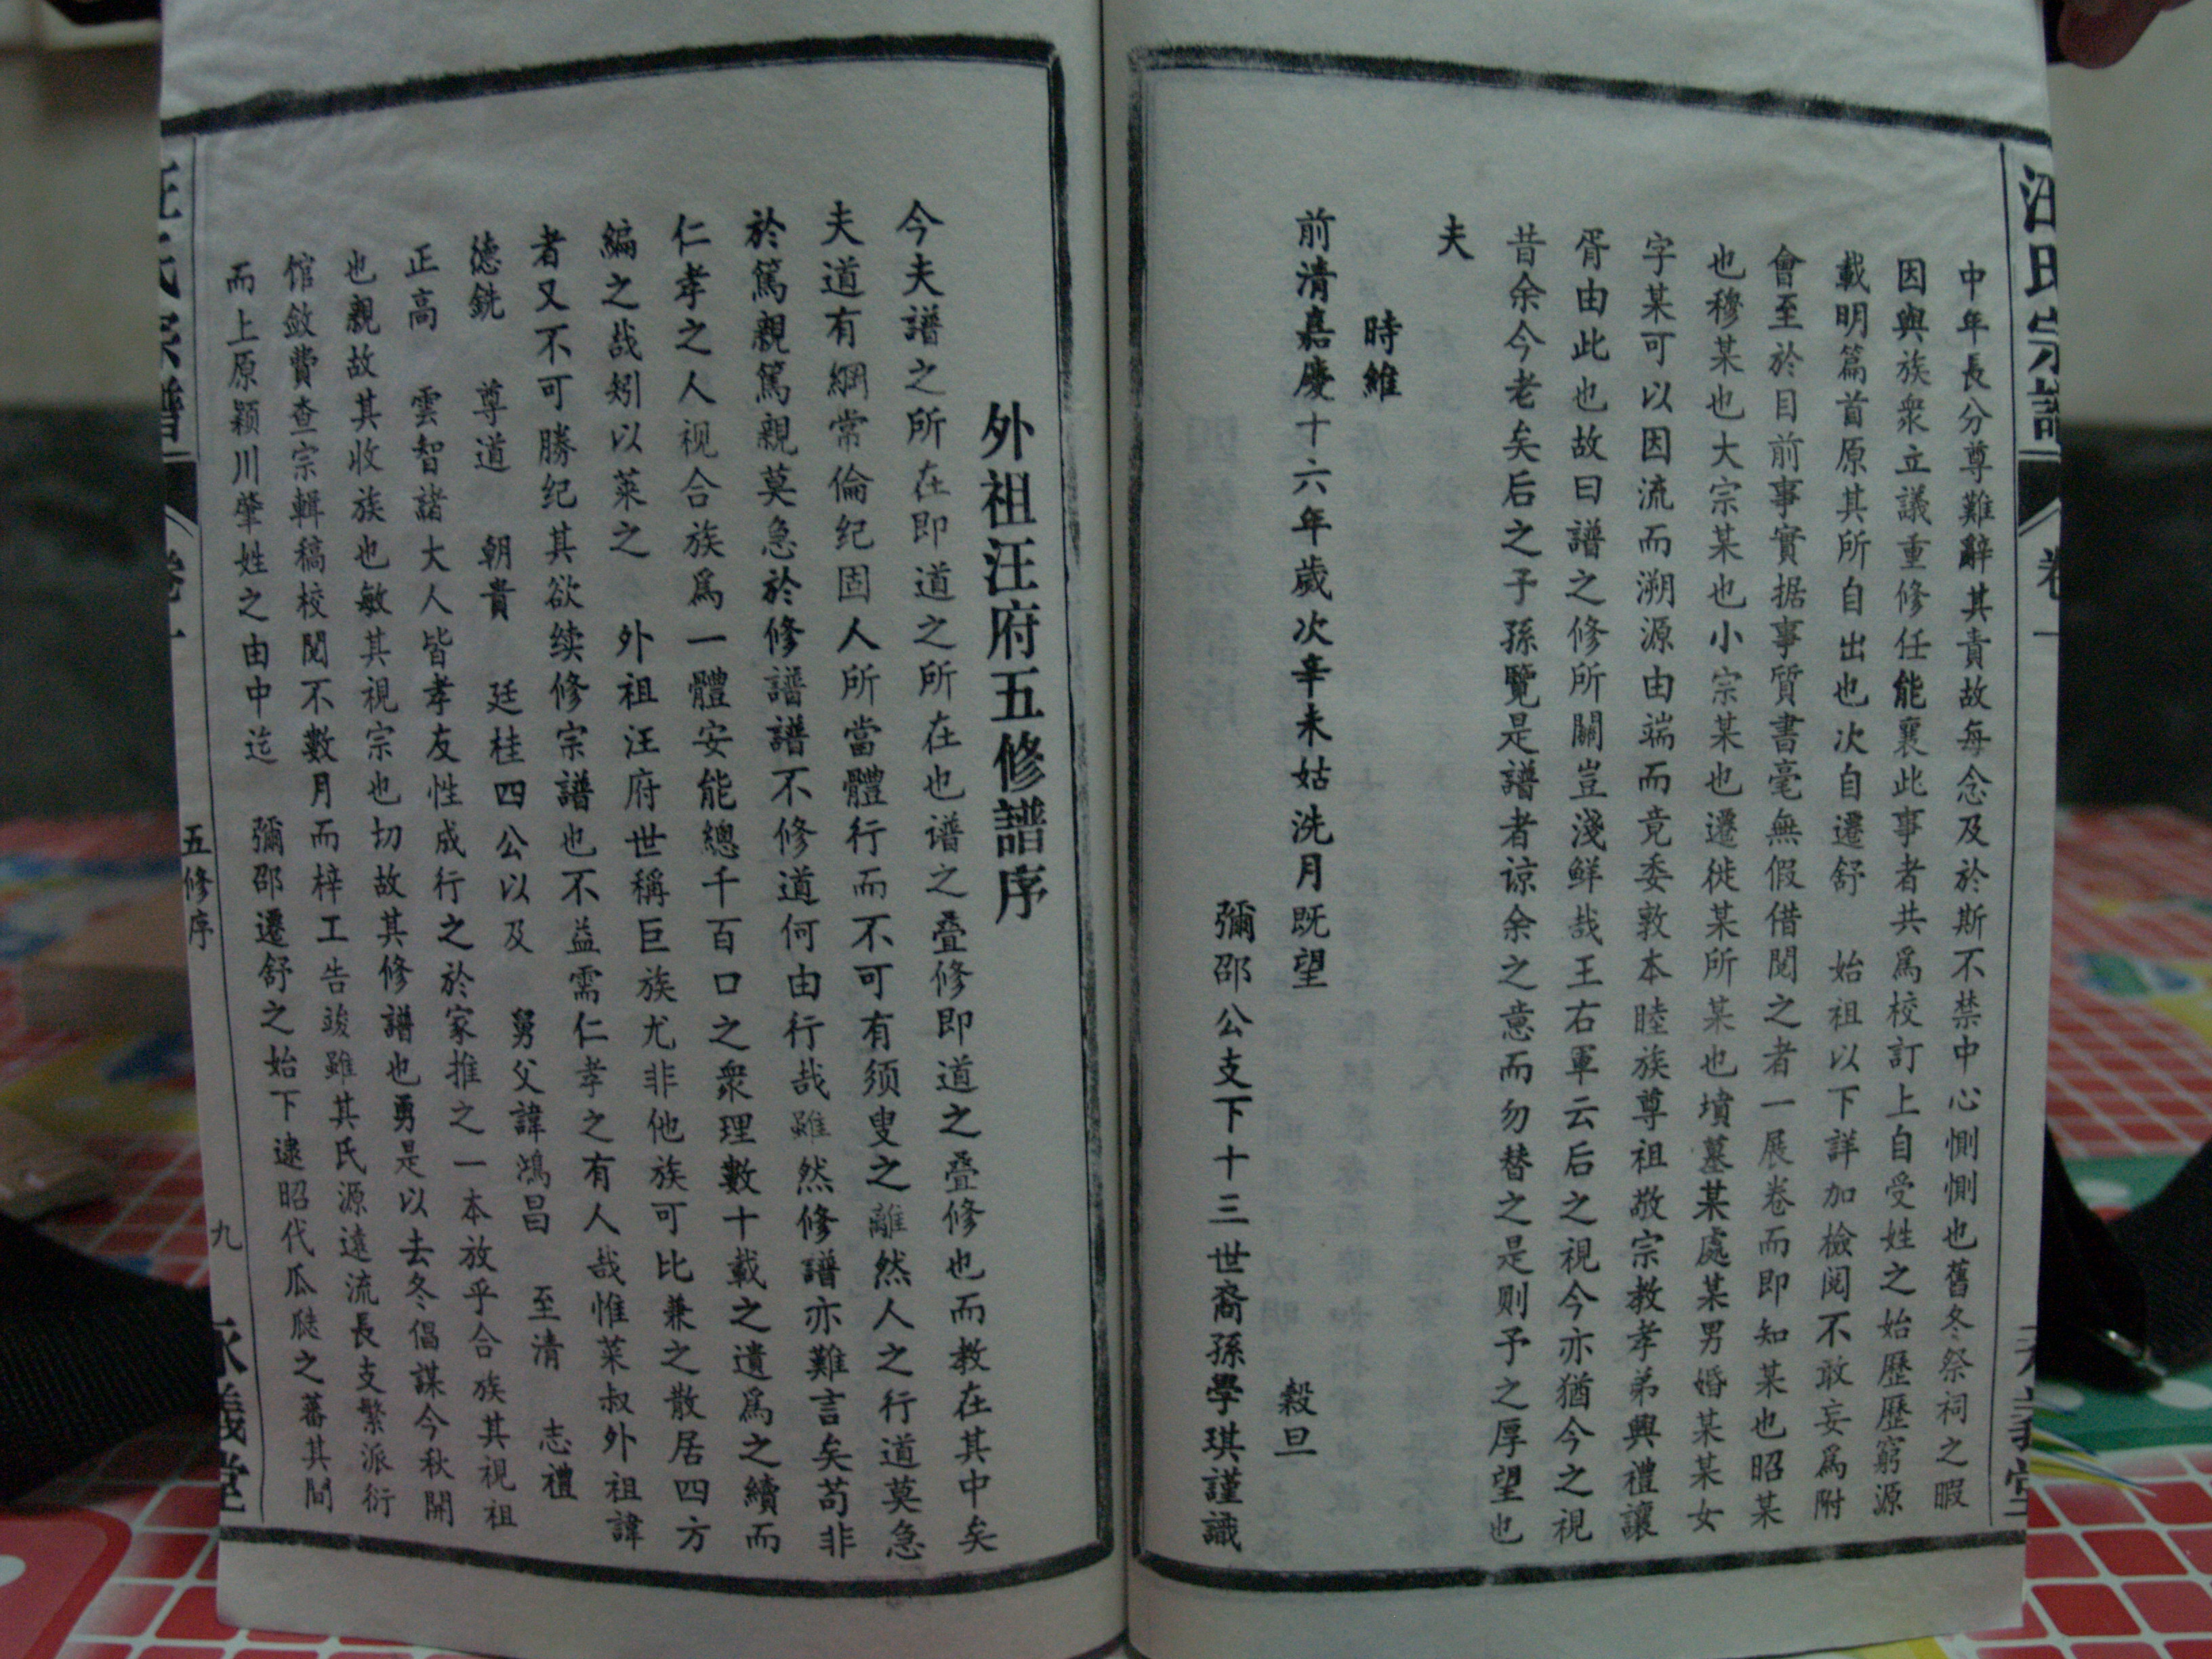 汪氏宗譜
卷一
中年長分尊難辭其責故每念及於斯不禁中心惻惻也舊冬祭祠之暇
因與族衆立議重修任能襄此事者共爲校訂上自受姓之始歷歷窮源
載明篇首原其所自出也次自遷舒 始祖以下詳加檢閱不敢妄爲附
會至於目前事實据事質書毫無假借閱之者一展卷而即知某也昭某
也穆某也大宗某也小宗某也遷徙某所某也墳墓某處某男婚某某女
字某可以因流而溯源由端而竟委敦本睦族尊祖敬宗教孝弟興禮讓
胥由此也故曰譜之修所關豈淺鲜哉王右軍云后之視今亦猶今之視
昔余今老矣后之予孫覽是譜者谅余之意而勿替之是则予之厚望也
夫
時維
前清嘉慶十六年歲次辛未姑洗月既望 穀旦
彌邵公支下十三世裔孫學琪謹識
外祖汪府五修譜序
今夫譜之所在即道之所在也谱之叠修即道之叠修也而教在其中矣
夫道有綱常倫纪固人所當體行而不可有须叟之離然人之行道莫急
於篤親篤親莫急於修譜譜不修道何由行哉雖然修譜亦難言矣苟非
仁孝之人视合族爲一體安能總千百口之衆理數十載之遺爲之續而
編之哉矧以菜之 外祖汪府世稱巨族尤非他族可比兼之散居四方
者又不可勝纪其欲续修宗譜也不益需仁孝之有人哉惟菜叔外祖諱
德銑 尊道 朝貴 廷桂四公以及 舅父諱鴻昌 至清 志禮
正高 雲智諸大人皆孝友性成行之於家推之一本放乎合族其視祖
也親故其收族也敏其視宗也切故其修譜也勇是以去冬倡謀今秋開
馆斂費查宗輯稿校閱不數月而梓工告竣雖其氏源遠流長支繁派衍
而上原颖川肇姓之由中迄 彌邵遷舒之始下逮昭代瓜瓞之蕃其間
汪氏宗譜
卷一
五修序
九
義堂